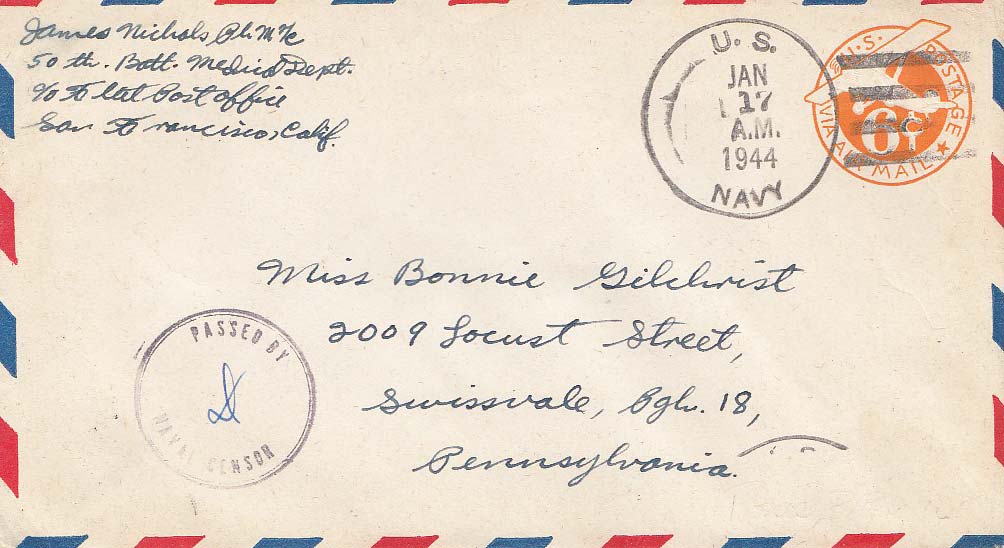 James Nichols, Ph. M 1/c
50 th. Batt. Medical Dept.
c/o Fleet Post Office
San Francisco, Calif.
U. S.
JAN
17
A.M.
1944
NAVY
U.S. POSTAGE
6¢
VIA AIR MAIL
Miss Bonnie Gilchrist
2009 Locust Street,
Swissvale, Pgh. 18,
Pennsylvania.
PASSED BY
NAVAL CENSOR